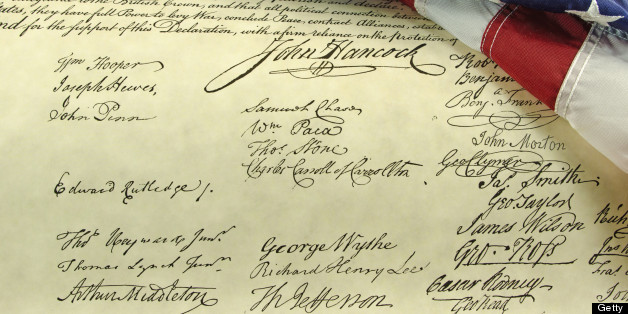 to the British Crown, and that all political connection between
they have full Power to levy War, conclude Peace, contract Alliances,
nd for the support of this Declaration, with a firm reliance on the protection of
John Hancock
Wm Hooper
Joseph Hewes,
John Penn
Edward Rutledge /.
Thos Heyward Junr.
Thomas Lynch Junr.
Arthur Middleton
Samuel Chase
Wm Paca
Thos Stone
Charles Carroll of Carrollton
George Wythe
Richard Henry Lee
Th Jefferson
Rob
Benjamin
Benj. Frankl
John Morton
Geo Clymer
Jas. Smith
Geo. Taylor
James Wilson
Geo. Ross
Caesar Rodney
Geo Read
Getty